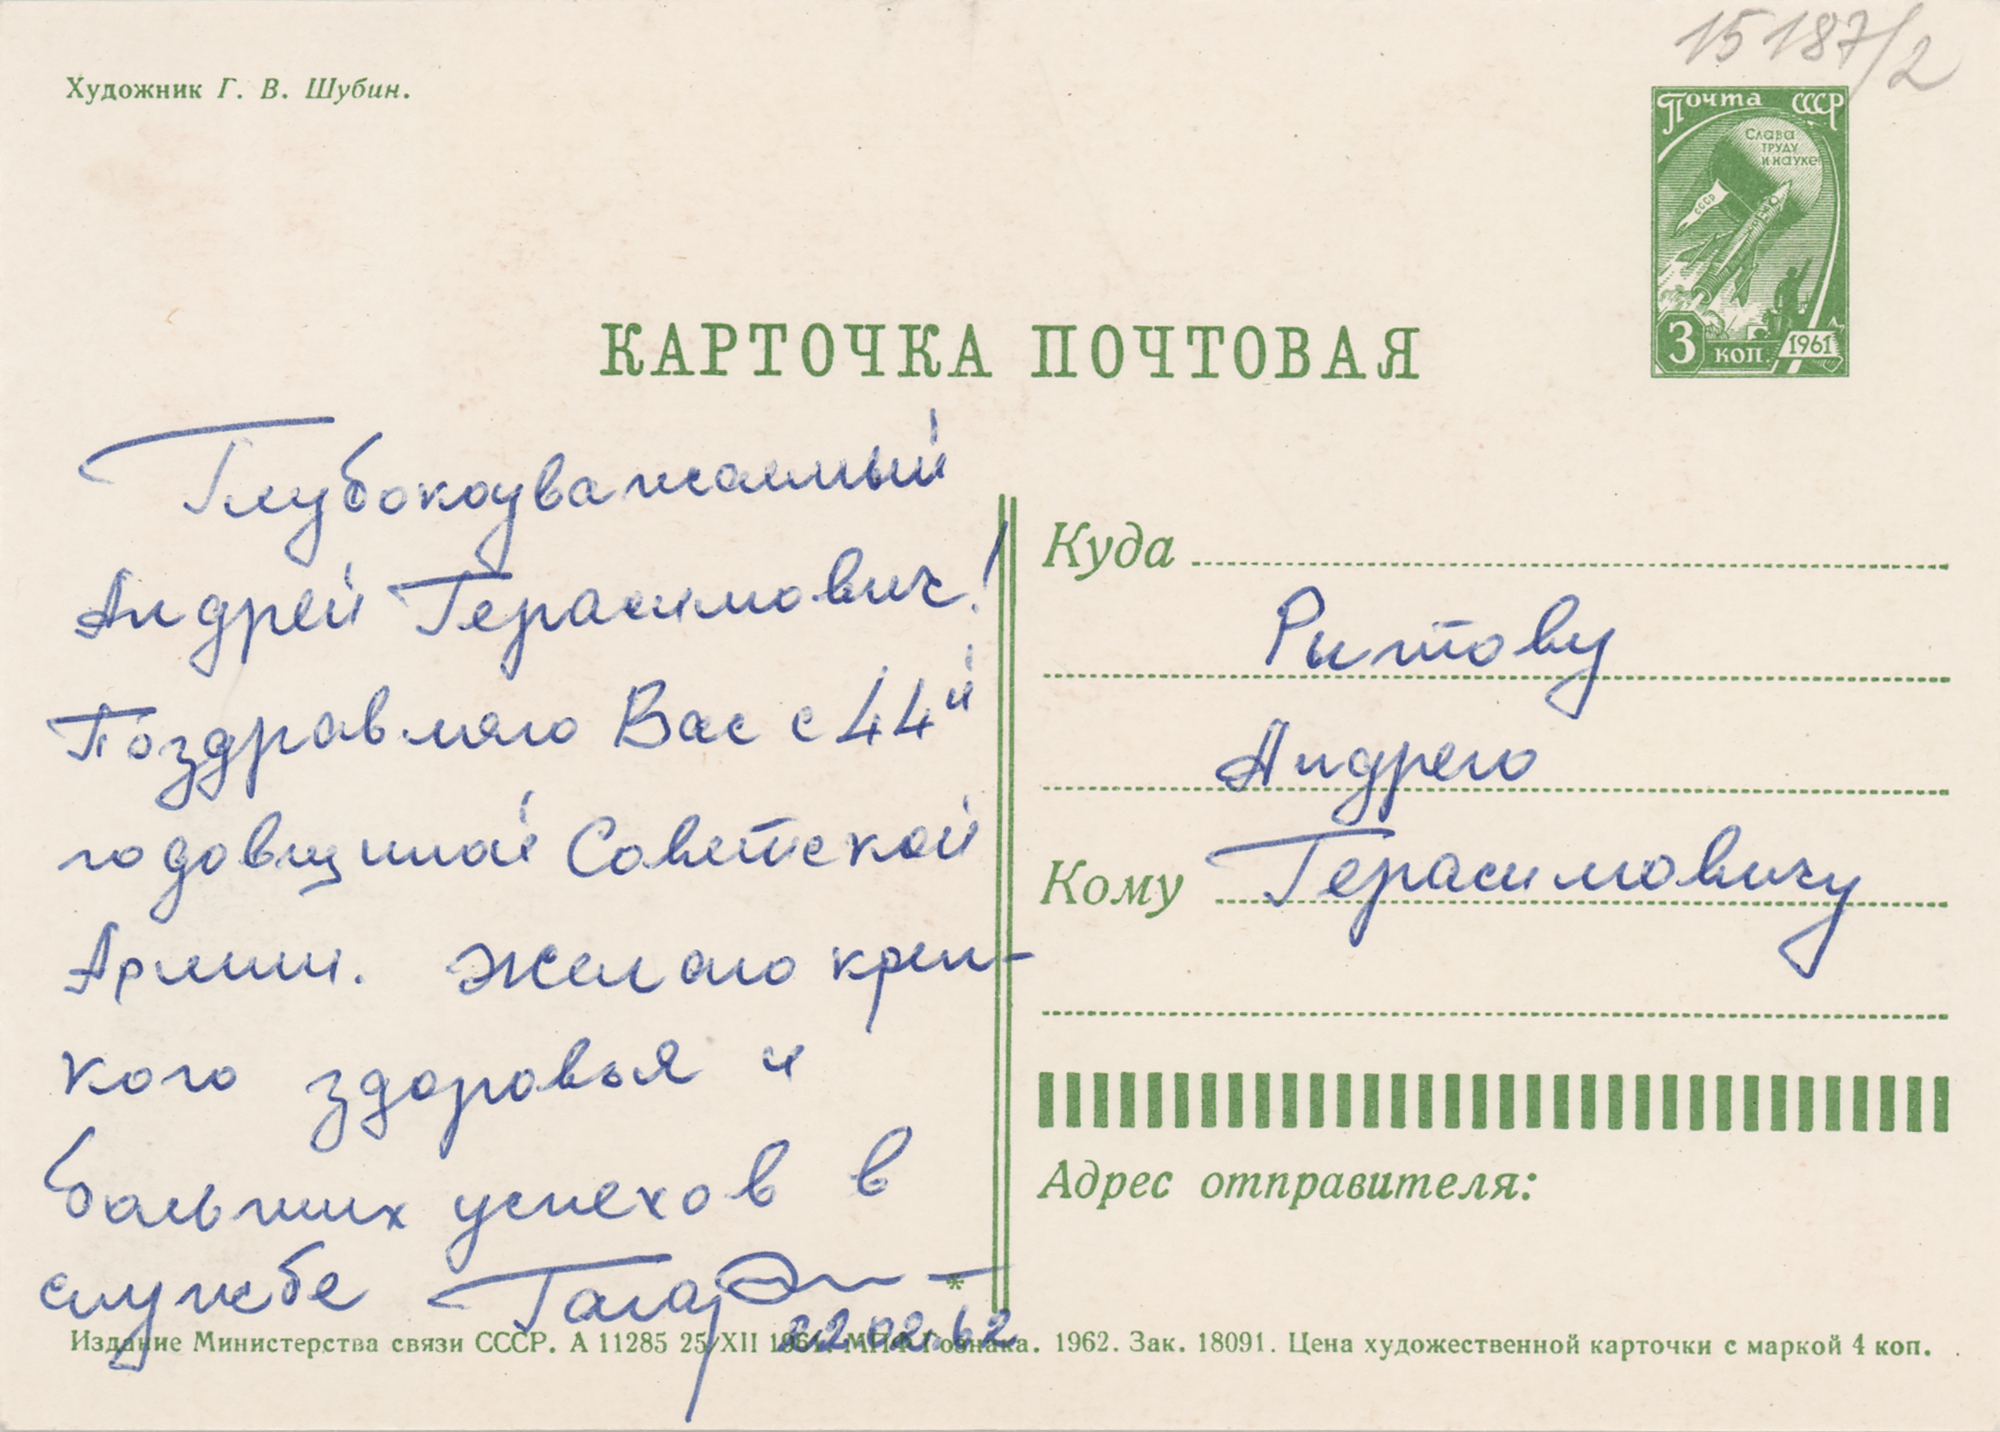 15187/2
Художник Г. В. Шубин.
Почта СССР
Слава
труду
и науке!
СССР
3 коп. 1961
КАРТОЧКА ПОЧТОВАЯ
Глубокоуважаемый
Андрей Герасимович!
Поздравляю Вас с 44й
годовщиной Советской
Армии. Желаю креп-
кого здоровья и
больших успехов в
службе Гагарин
22.02.62
Куда
Рытову
Андрею
Кому Герасимовичу
Адрес отправителя:
*
Издание Министерства связи СССР. А 11285 25/XII 1961. МПФ Гознака. 1962. Зак. 18091. Цена художественной карточки с маркой 4 коп.